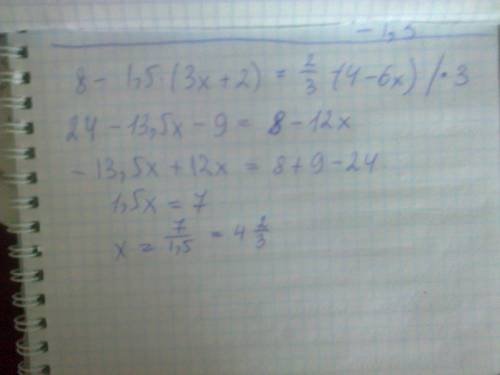 -1,5
8 - 1,5 (3x + 2) = 2/3 · (4 - 6x) / · 3
24 - 13,5x - 9 = 8 - 12x
- 13,5x + 12x = 8 + 9 - 24
1,5x = 7
x = 7/1,5 = 4 2/3